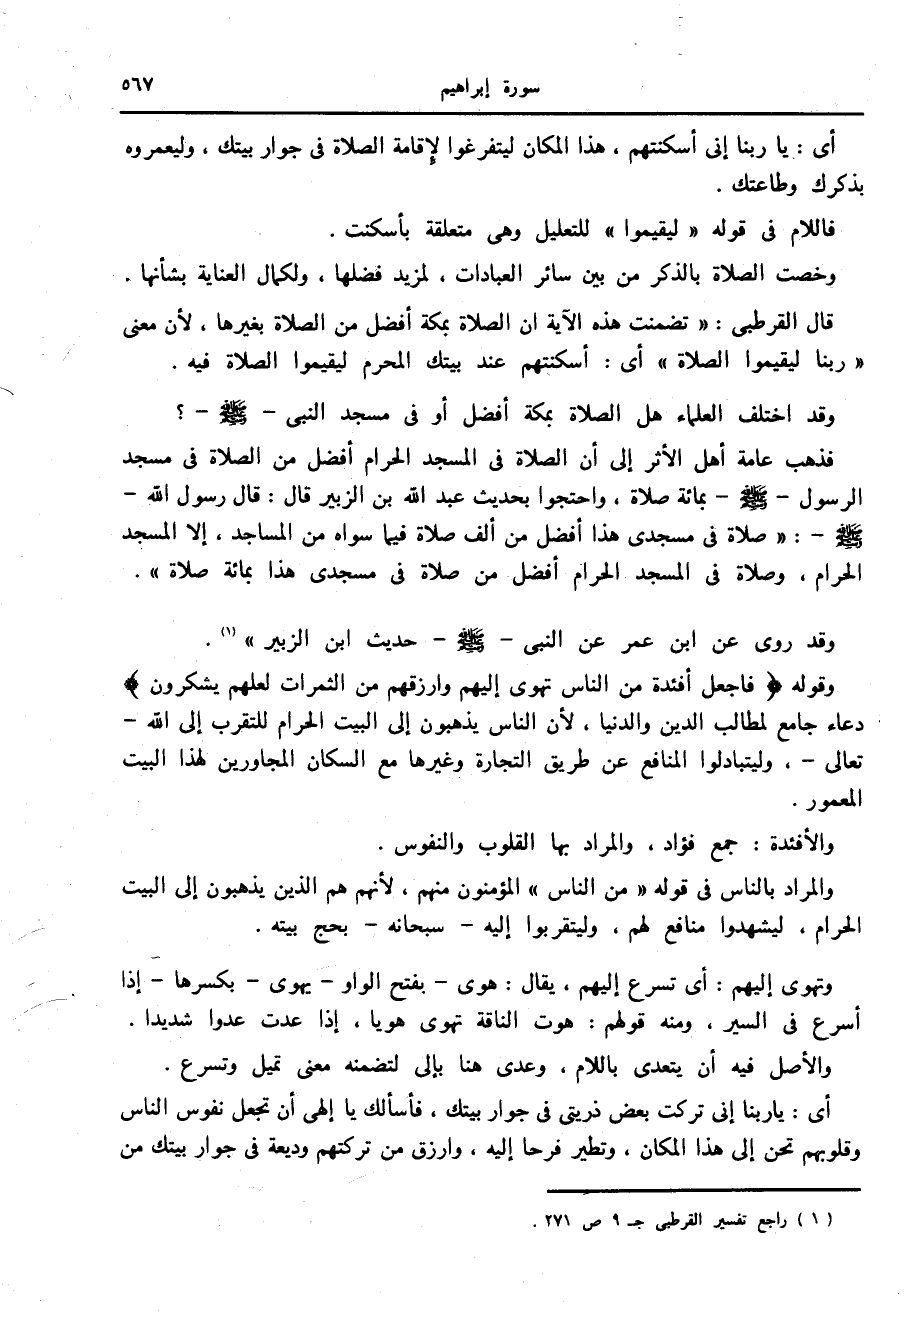 سورة إبراهيم ٥٦٧
أى : يا ربنا إنى أسكنتهم ، هذا المكان ليتفرغوا لإقامة الصلاة فى جوار بيتك ، وليعمروه
بذكرك وطاعتك .
فاللام فى قوله « ليقيموا » للتعليل وهى متعلقة بأسكنت .
وخصت الصلاة بالذكر من بين سائر العبادات ، لمزيد فضلها ، ولكمال العناية بشأنها .
قال القرطبى : « تضمنت هذه الآية ان الصلاة بمكة أفضل من الصلاة بغيرها ، لأن معنى
« ربنا ليقيموا الصلاة » أى : أسكنتهم عند بيتك المحرم ليقيموا الصلاة فيه .
وقد اختلف العلماء هل الصلاة بمكة أفضل أو فى مسجد النبى - ﷺ - ؟
فذهب عامة أهل الأثر إلى أن الصلاة فى المسجد الحرام أفضل من الصلاة فى مسجد
الرسول - ﷺ - بمائة صلاة ، واحتجوا بحديث عبد الله بن الزبير قال : قال رسول الله -
ﷺ - : « صلاة فى مسجدى هذا أفضل من ألف صلاة فيما سواه من المساجد ، إلا المسجد
الحرام ، وصلاة فى المسجد الحرام أفضل من صلاة فى مسجدى هذا بمائة صلاة » .
وقد روى عن ابن عمر عن النبى - ﷺ - حديث ابن الزبير » (١) .
وقوله ﴿ فاجعل أفئدة من الناس تهوى إليهم وارزقهم من الثمرات لعلهم يشكرون ﴾
دعاء جامع لمطالب الدين والدنيا ، لأن الناس يذهبون إلى البيت الحرام للتقرب إلى الله -
تعالى - ، وليتبادلوا المنافع عن طريق التجارة وغيرها مع السكان المجاورين لهذا البيت
المعمور .
والأفئدة : جمع فؤاد ، والمراد بها القلوب والنفوس .
والمراد بالناس فى قوله « من الناس » المؤمنون منهم ، لأنهم هم الذين يذهبون إلى البيت
الحرام ، ليشهدوا منافع لهم ، وليتقربوا إليه - سبحانه - بحج بيته .
وتهوى إليهم : أى تسرع إليهم ، يقال : هوى - بفتح الواو - يهوى - بكسرها - إذا
أسرع فى السير ، ومنه قولهم : هوت الناقة تهوى هويا ، إذا عدت عدوا شديدا .
والأصل فيه أن يتعدى باللام ، وعدى هنا بإلى لتضمنه معنى تميل وتسرع .
أى : ياربنا إنى تركت بعض ذريتى فى جوار بيتك ، فأسألك يا إلهى أن تجعل نفوس الناس
وقلوبهم تحن إلى هذا المكان ، وتطير فرحا إليه ، وارزق من تركتهم وديعة فى جوار بيتك من
( ١ ) راجع تفسير القرطبى جـ ٩ ص ٢٧١ .